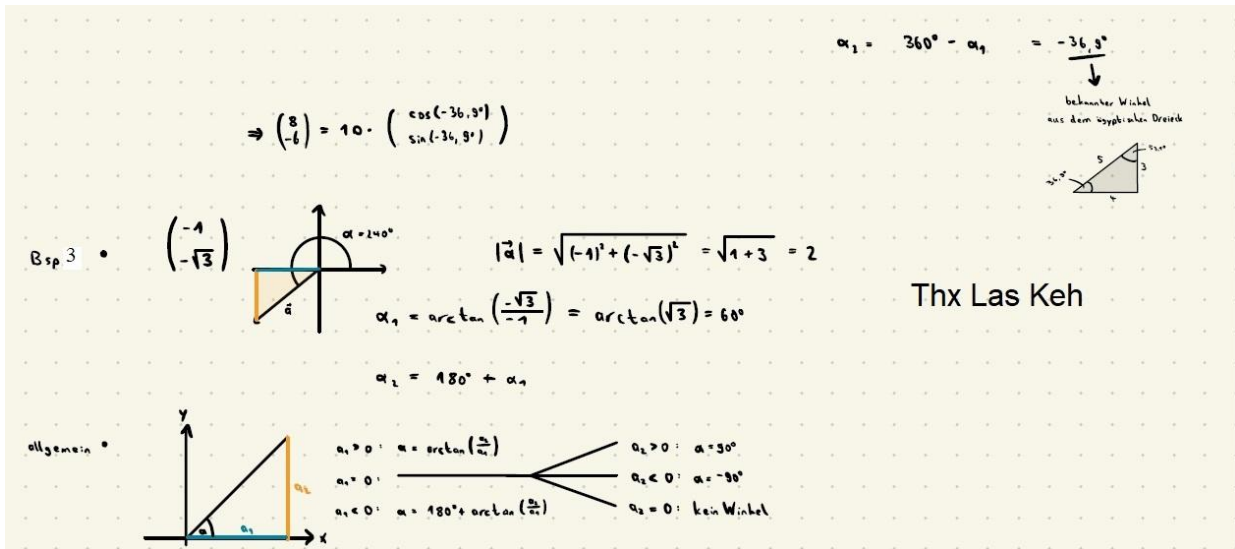 α₂ = 360° - α₁ = -36,9°
bekannter Winkel
aus dem ägyptischen Dreieck
36,9°
5
3
4
⇒ (8 -6) = 10 · (cos(-36,9°) sin(-36,9°))
Bsp 3 • (-1 -√3)
α = 240°
a⃗
|a⃗| = √((-1)² + (-√3)²) = √(1 + 3) = 2
α₁ = arctan(-√3/-1) = arctan(√3) = 60°
Thx Las Keh
α₂ = 180° + α₁
allgemein •
y
x
α
a₁
a₂
a₁ > 0 : α = arctan(a₂/a₁)
a₁ = 0 :
a₁ < 0 : α = 180° + arctan(a₂/a₁)
a₂ > 0 : α = 90°
a₂ < 0 : α = -90°
a₂ = 0 : kein Winkel